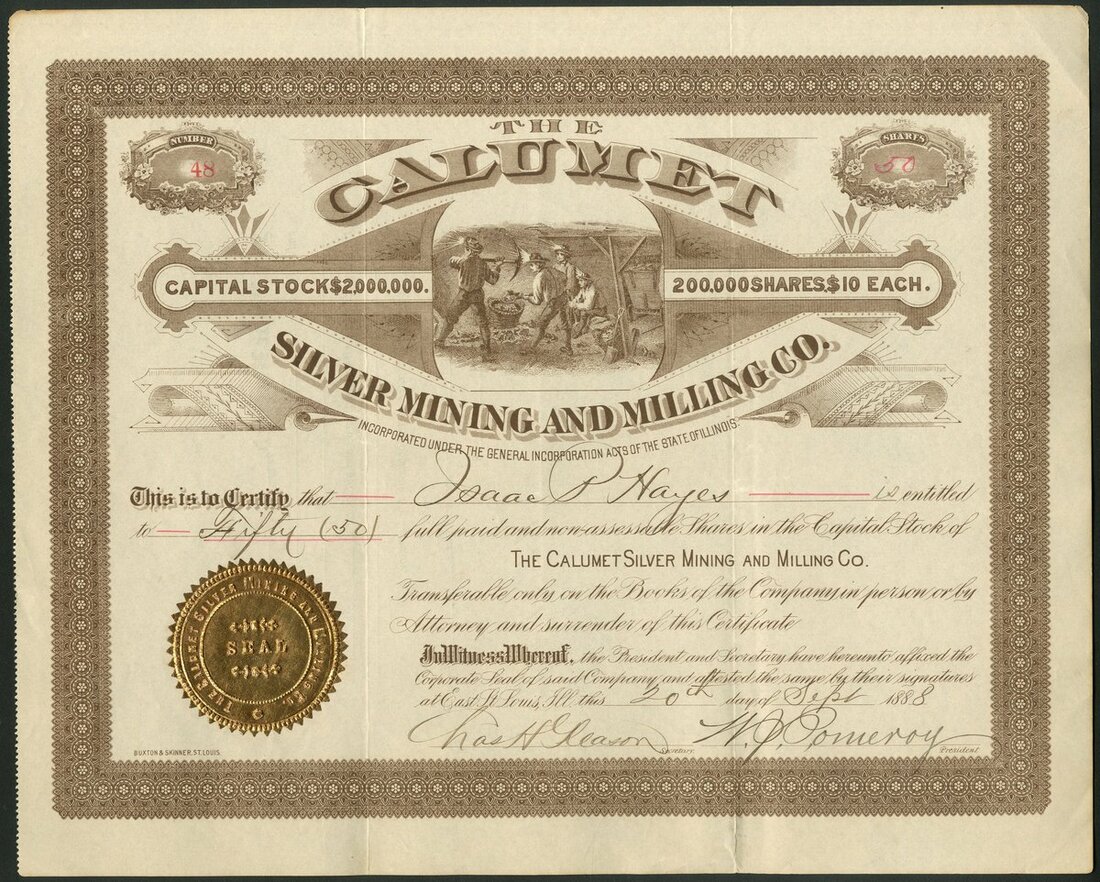 NUMBER
48
SHARES
50
THE
CALUMET
CAPITAL STOCK $2,000,000.
200,000 SHARES, $10 EACH.
SILVER MINING AND MILLING CO.
INCORPORATED UNDER THE GENERAL INCORPORATION ACTS OF THE STATE OF ILLINOIS.
This is to Certify that Isaac P Hayes is entitled
to Fifty (50) full paid and non-assessable Shares in the Capital Stock of
THE CALUMET SILVER MINING AND MILLING CO.
Transferable only on the Books of the Company in person or by
Attorney and surrender of this Certificate
In Witness Whereof, the President and Secretary have hereunto affixed the
Corporate Seal of said Company and attested the same by their signatures
at East St Louis, Ill. this 20th day of Sept 1888
Chas H Gleason Secretary. W. J. Pomeroy President
THE CALUMET SILVER MINING AND MILLING CO.
SEAL
BUXTON & SKINNER, ST. LOUIS